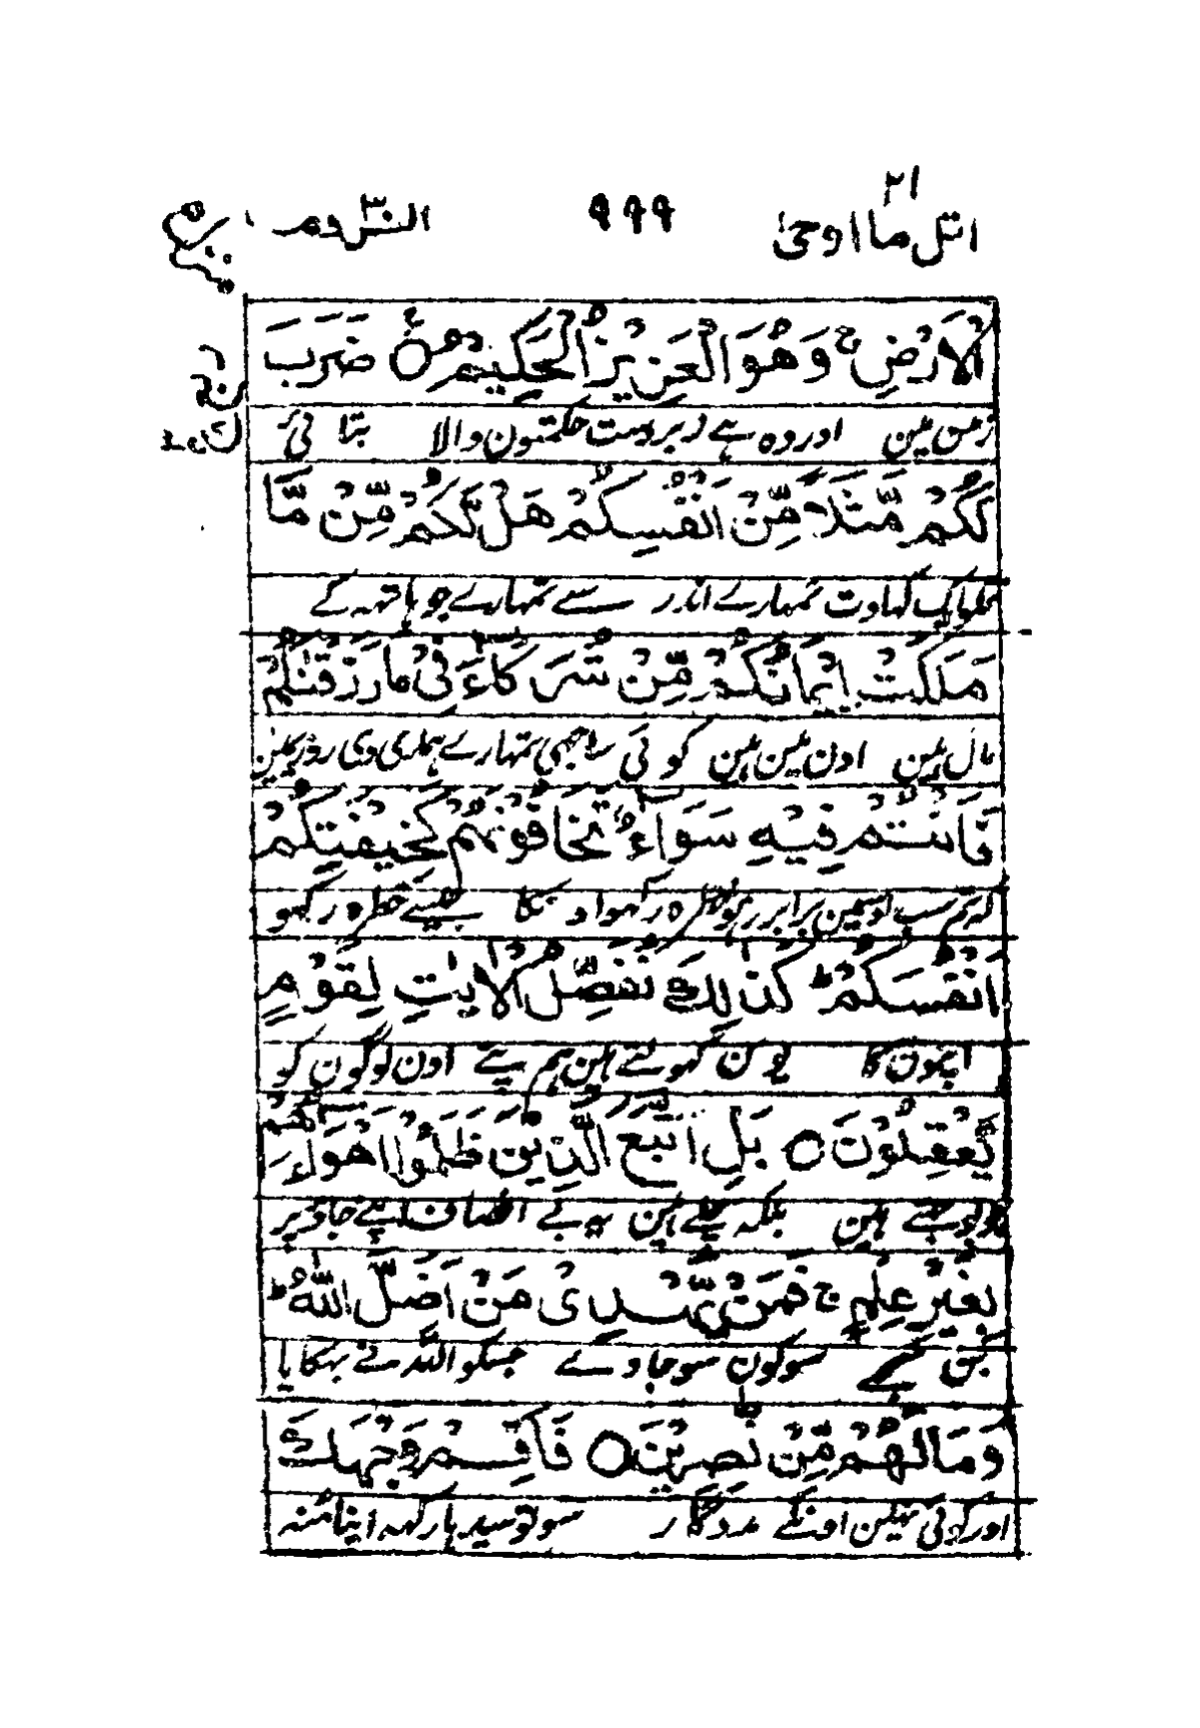 ۲۱
اتل ما اوحی ۹۹۹ الروم ۳۰
الْاَرْضِ ۚ وَهُوَ الْعَزِیْزُ الْحَكِیْمُ ۝ ضَرَبَ
زمین مین اور وہ ہے زبردست حکمتون والا بتائی
لَكُمْ مَّثَلًا مِّنْ اَنْفُسِكُمْ هَلْ لَّكُمْ مِّنْ مَّا
تمکو ایک کہاوت تمہارے اندر سے تمہارے جو ہاتھہ کے
مَلَكَتْ اَیْمَانُكُمْ مِّنْ شُرَكَآءَ فِیْ مَا رَزَقْنٰكُمْ
مال ہین اون مین ہین کوئی ساجھی تمہارے ہماری دی روزی مین
فَاَنْتُمْ فِیْهِ سَوَآءٌ تَخَافُوْنَهُمْ كَخِیْفَتِكُمْ
کہ تم سب اوسمین برابر ہو خطرہ رکہو اونکا جیسے خطرہ رکہو
اَنْفُسَكُمْ ؕ كَذٰلِكَ نُفَصِّلُ الْاٰیٰتِ لِقَوْمٍ
اپنون کا یون کہولتے ہین ہم پتے اون لوگون کو
یَّعْقِلُوْنَ ۝ بَلِ اتَّبَعَ الَّذِیْنَ ظَلَمُوْۤا اَهْوَآءَهُمْ
جو بوجہتے ہین بلکہ چلے ہین یہ بے انصاف اپنے چاؤ پر
بِغَیْرِ عِلْمٍ ۚ فَمَنْ یَّهْدِیْ مَنْ اَضَلَّ اللّٰهُ ؕ
بن سمجھے سو کون سوجہاوے جسکو اللہ نے بہکایا
وَمَا لَهُمْ مِّنْ نّٰصِرِیْنَ ۝ فَاَقِمْ وَجْهَكَ
اور کوئی نہین اونکے مددگار سو تو سیدہا رکہہ اپنا منہ